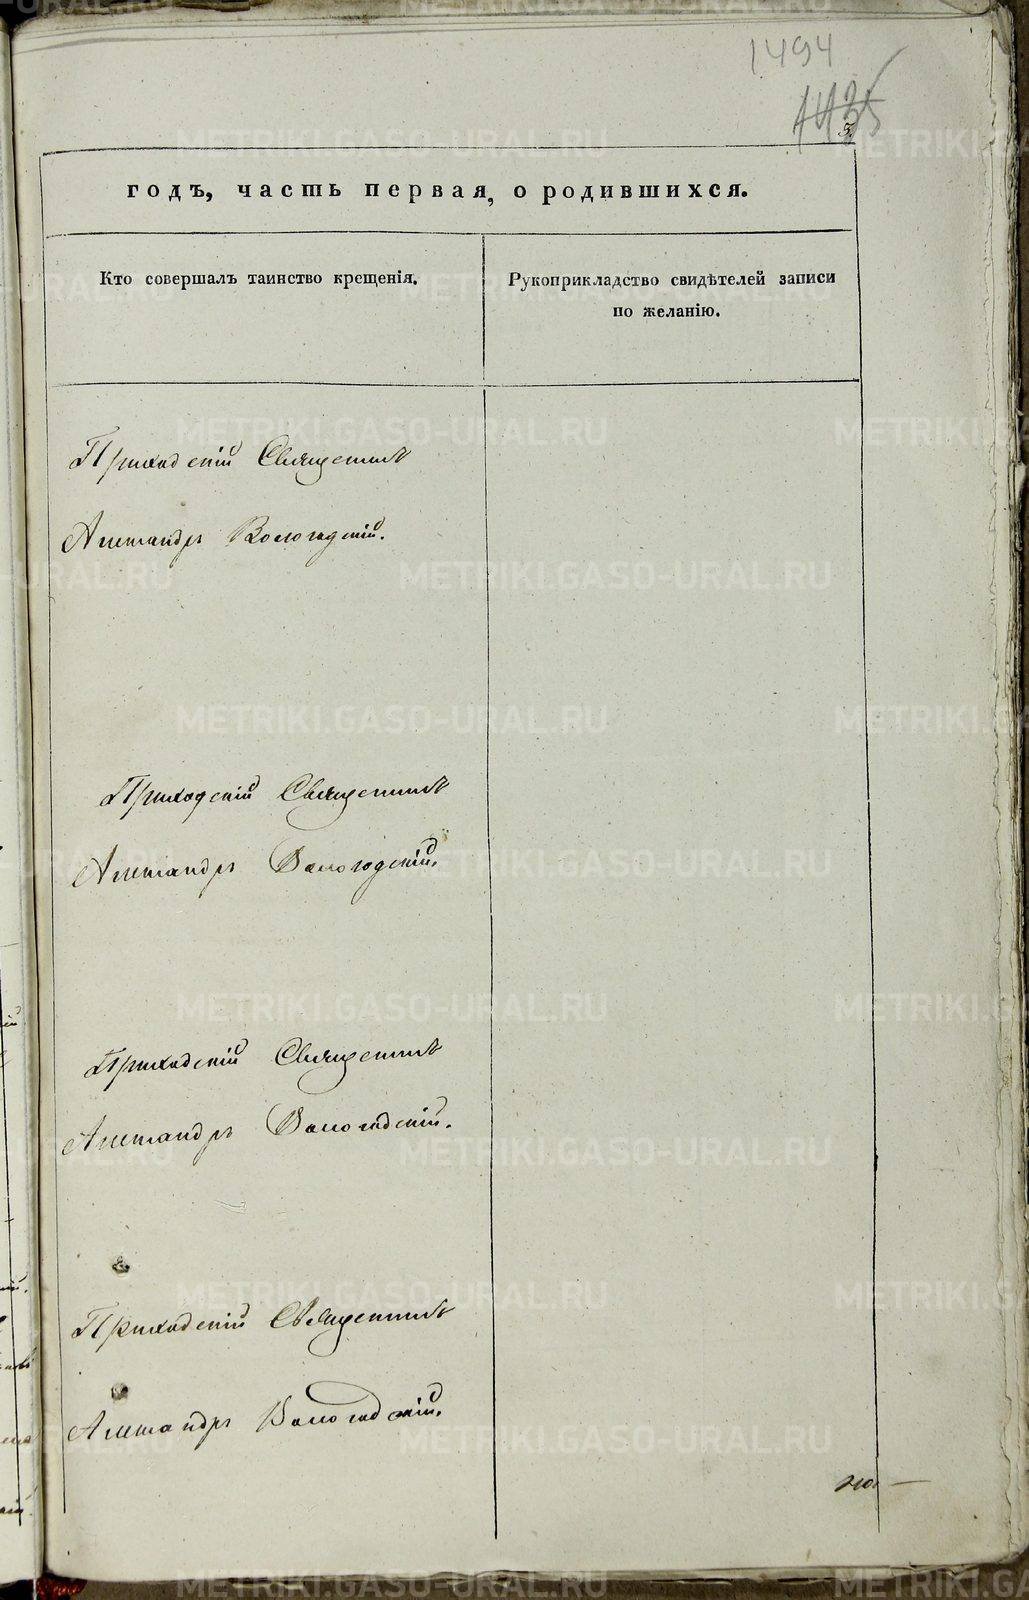 1494
1435
5
годъ, часть первая, о родившихся.
Кто совершалъ таинство крещенія.
Рукоприкладство свидѣтелей записи
по желанію.
Приходскій Священникъ
Александръ Вологодскій.
Приходскій Священникъ
Александръ Вологодскій.
Приходскій Священникъ
Александръ Вологодскій.
Приходскій Священникъ
Александръ Вологодскій.
METRIKI.GASO-URAL.RU